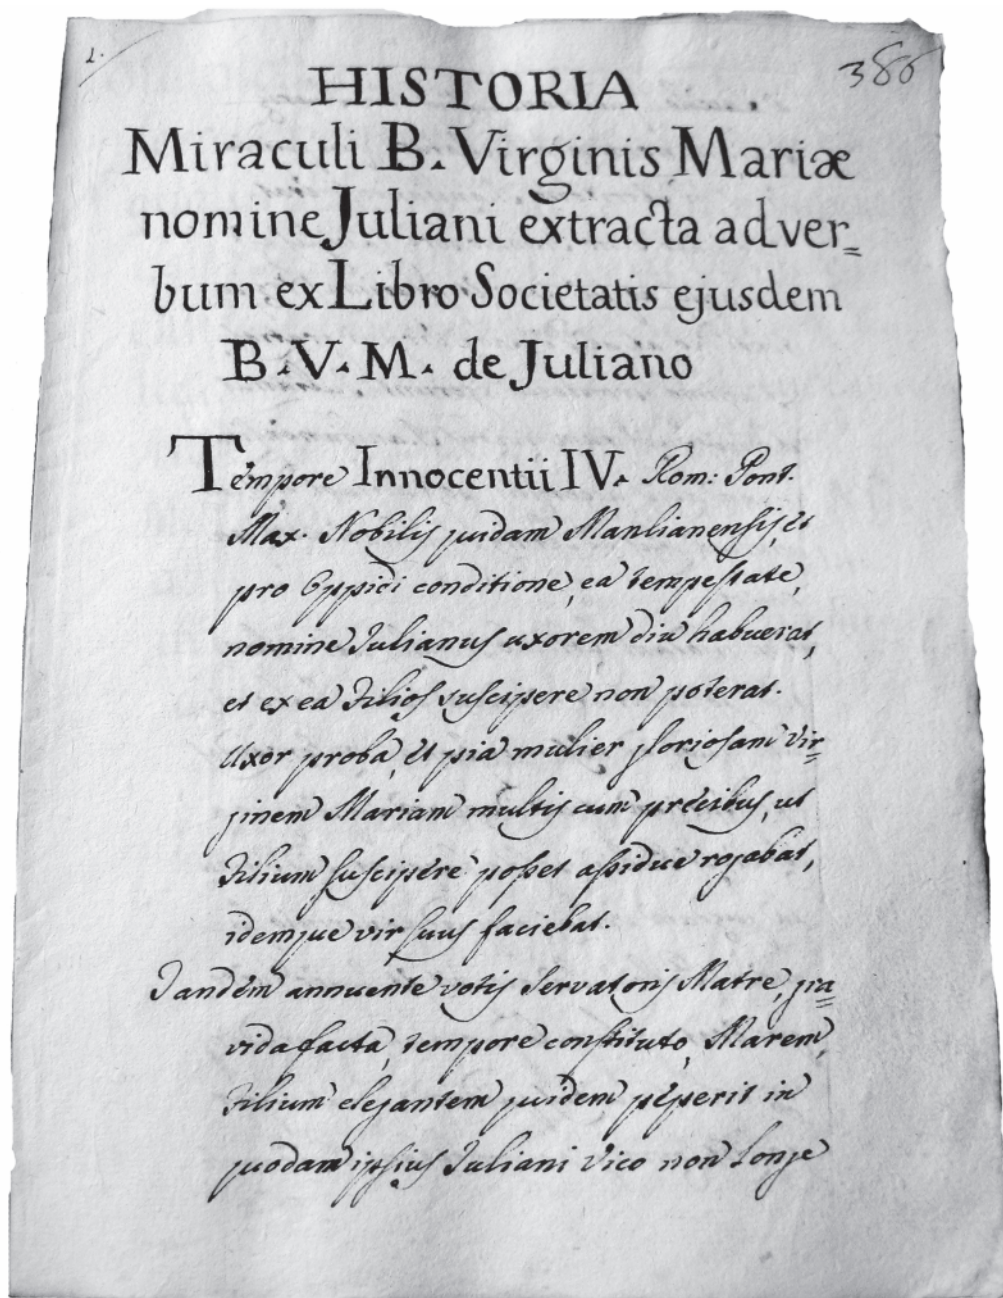 1.
386
HISTORIA
Miraculi B. Virginis Mariæ
nomine Juliani extracta ad ver=
bum ex Libro Societatis ejusdem
B. V. M. de Juliano
Tempore Innocentii IV. Rom: Pont.
Max. Nobilis quidam Manlianensis, et
pro Oppidi conditione, ea tempestate,
nomine Julianus uxorem diu habuerat,
et ex ea Filios suscipere non poterat.
Uxor proba, et pia mulier gloriosam Vir=
ginem Mariam multis cum précibus, ut
Filium suscipére posset assidue rogabat,
idemque vir suus faciebat.
Tandém annuente votis Servatoris Matre, gra=
vida facta, tempore constituto, Marem,
Filium elegantem quidem péperit in
quodam ipsius Juliani Vico non longe